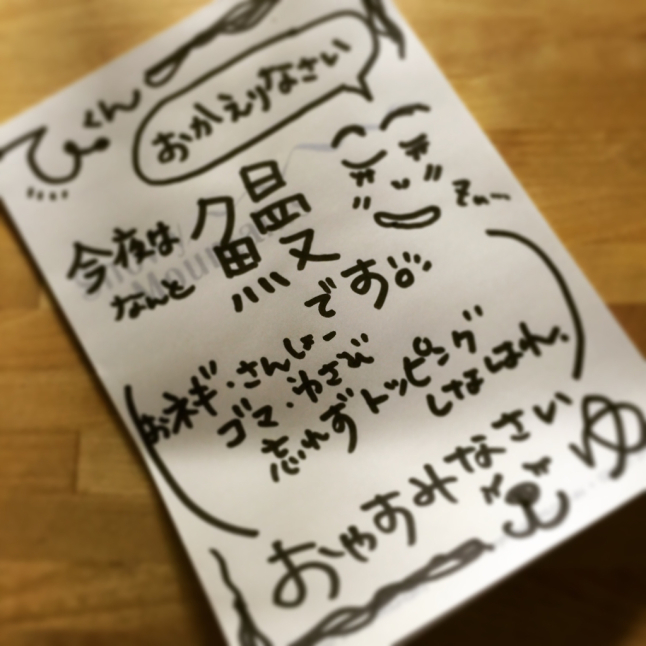 てつくん
おかえりなさい
今夜は
なんと
鰻
です。
お ネギ・さんしょー
ゴマ・わさび
忘れず トッピング
しなはれ。
おやすみなさい
ゆ